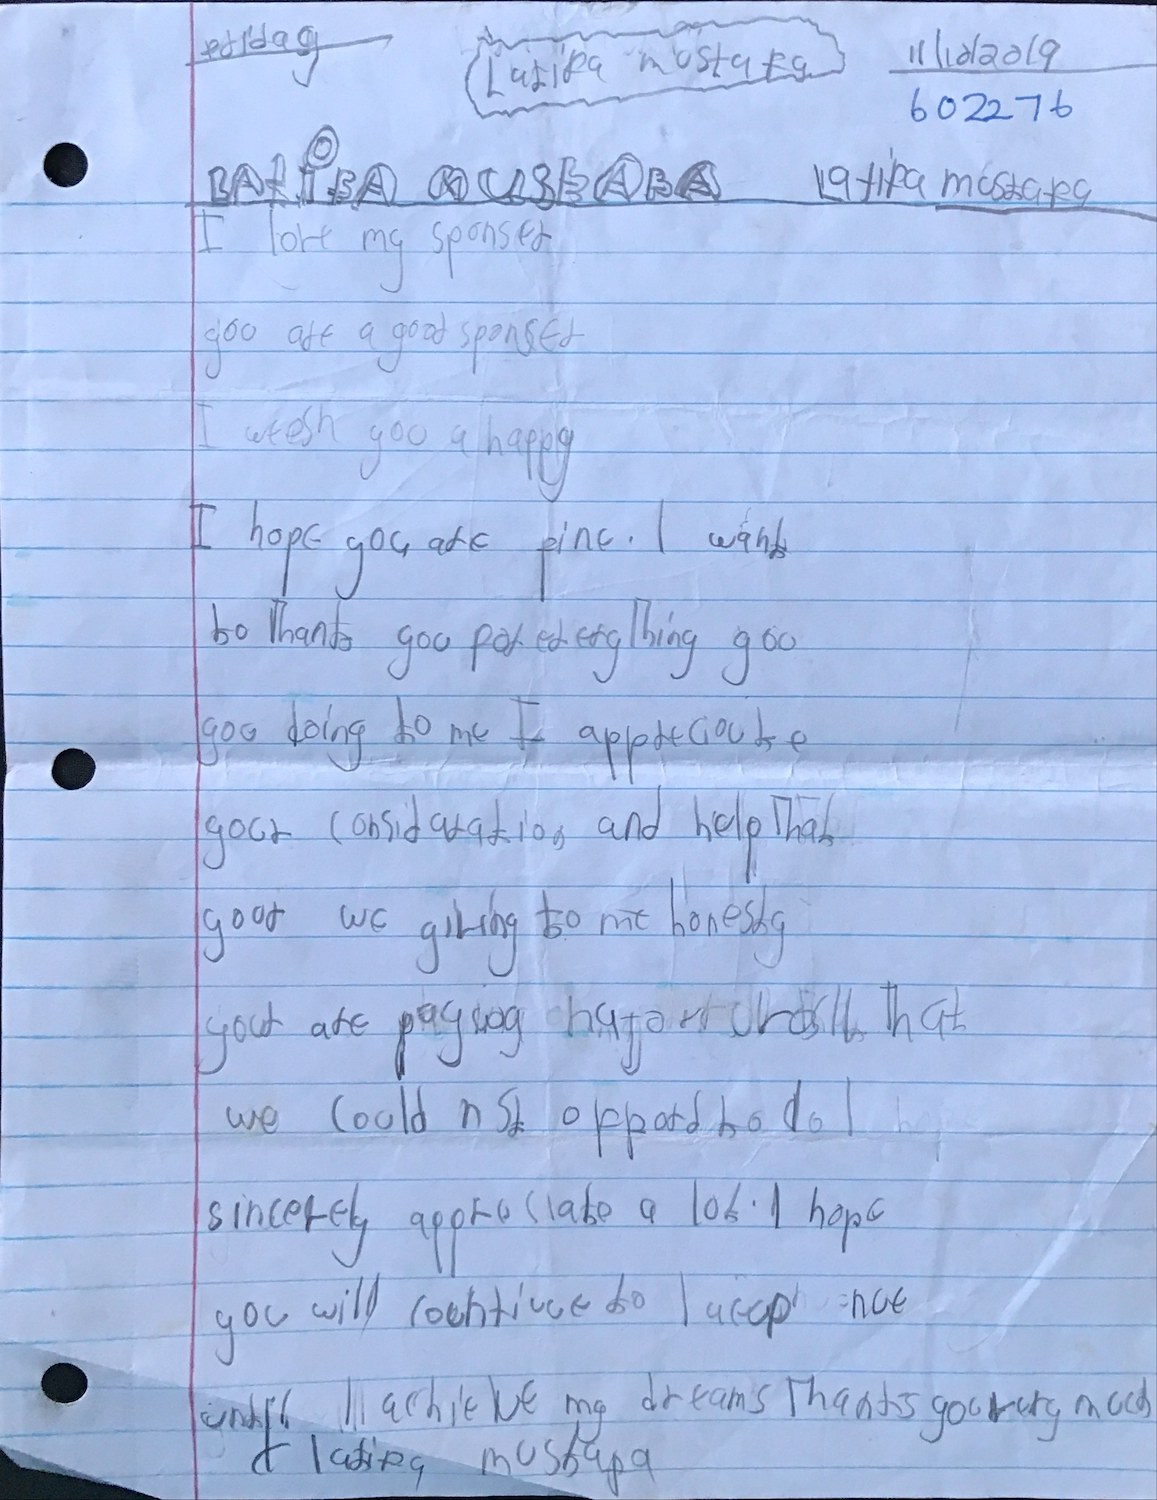 Friday Latifa mustafa 11/10/2019
602276
LATIFA MUSTAFA Latifa mustafa
I love my sponser
you are a good sponser
I weesh you a happy
I hope you are fine. I want
to Thank you for everything you
you doing to me I appreciate
your considaration and help That
your we giving to me honesty
your are paying That
we could not afford to do I
sincerely appreciate a lot. I hope
you will continue to
until I achieve my dreams Thanks you very much
latifa mustafa